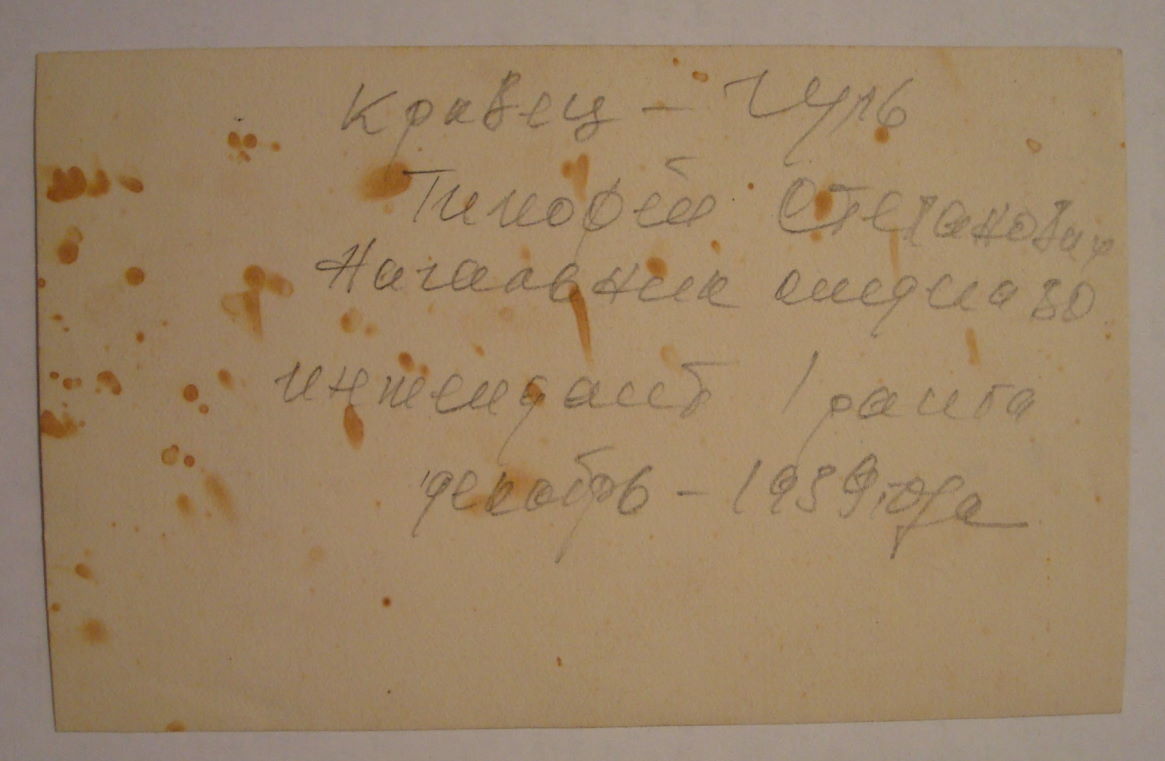 Кравец – Гуль
Тимофей Степанович
Начальник отдела ВО
интендант 1 ранга
декабрь – 1939 года